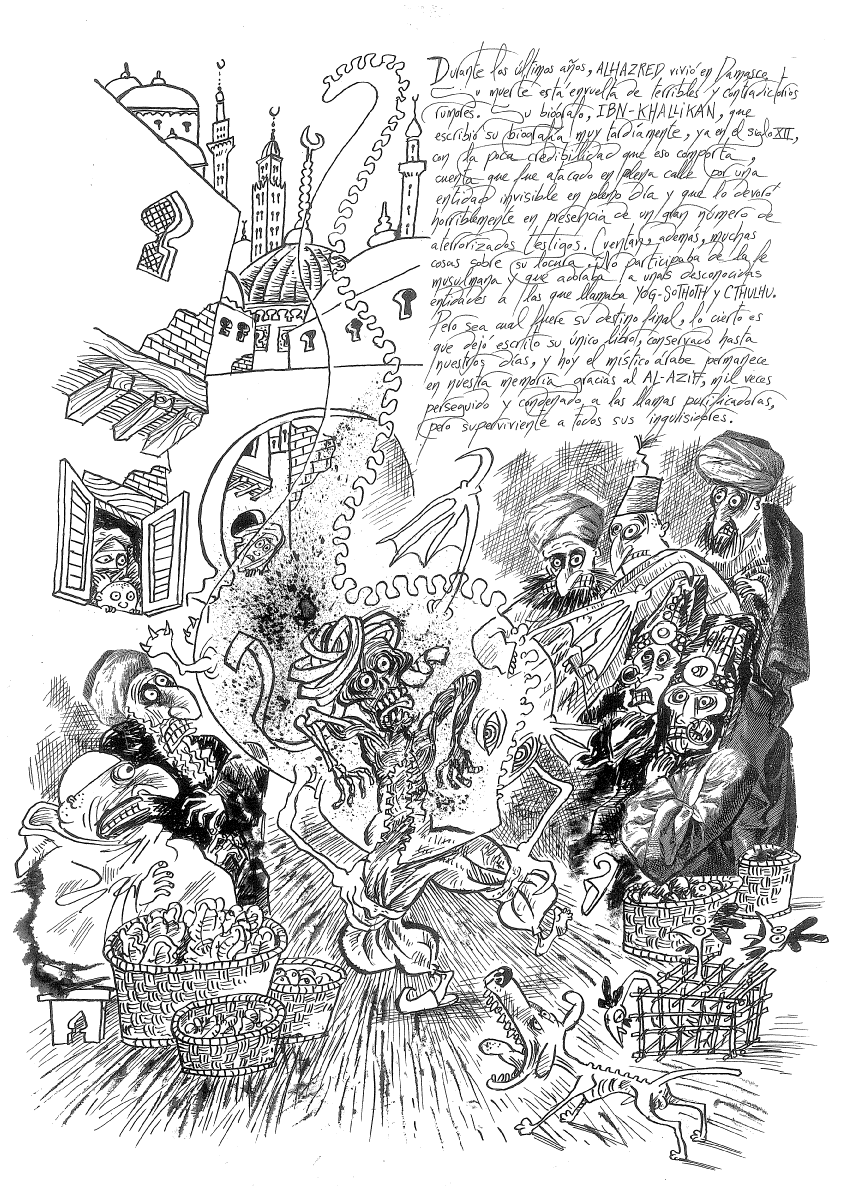 Durante los últimos años, ALHAZRED vivió en Damasco.
Su muerte está envuelta de terribles y contradictorios
rumores. Su biógrafo, IBN-KHALLIKAN, que
escribió su biografía muy tardíamente, ya en el siglo XII,
con la poca credibilidad que eso comporta,
cuenta que fue atacado en plena calle por una
entidad invisible en pleno día y que lo devoró
horriblemente en presencia de un gran número de
aterrorizados testigos. Cuentan, además, muchas
cosas sobre su locura. No participaba de la fe
musulmana y que adoraba a unas desconocidas
entidades a las que llamaba YOG-SOTHOTH y CTHULHU.
Pero sea cual fuere su destino final, lo cierto es
que dejó escrito su único libro, conservado hasta
nuestros días, y hoy el místico árabe permanece
en nuestra memoria gracias al AL-AZIF, mil veces
perseguido y condenado a las llamas purificadoras,
pero superviviente a todos sus inquisidores.